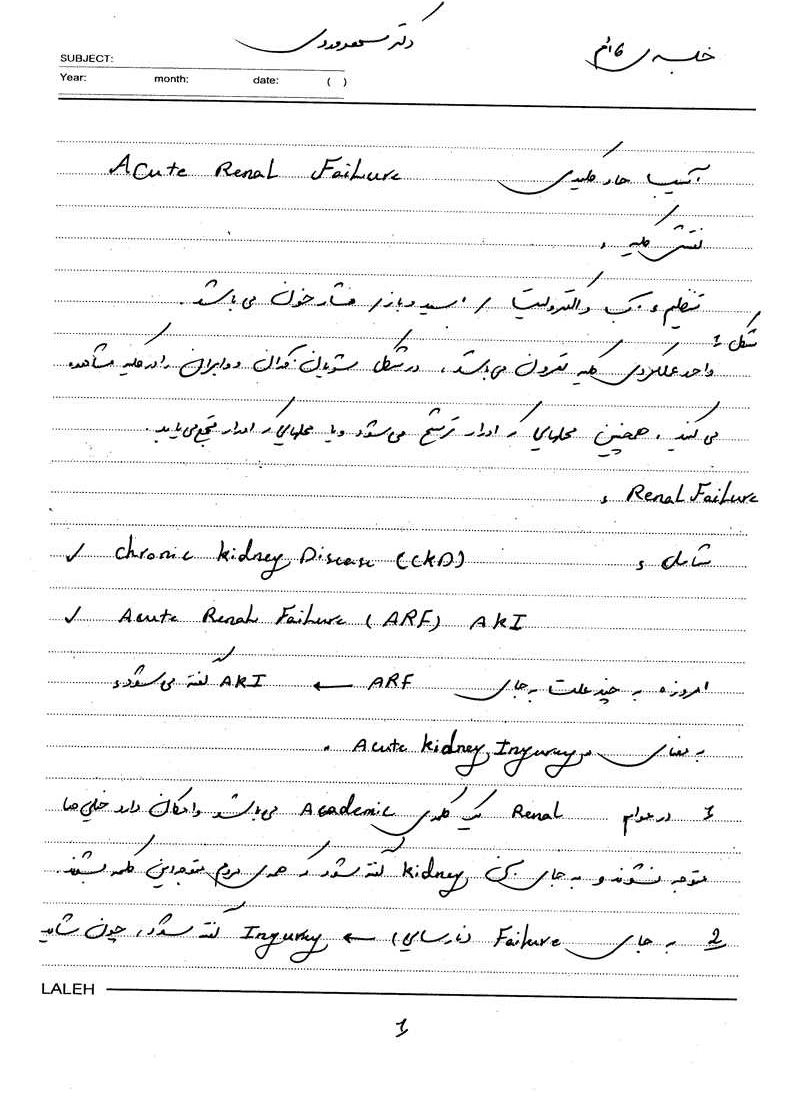 جلسه ی ۱۶ام
دکتر
SUBJECT:
Year: month: date: ( )
آسیب حاد کلیوی Acute Renal Failure
نقش کلیه :
تنظیم : آب و الکترولیت / اسید و باز / فشار خون می باشد.
شکل 1
واحد عملکردی کلیه نفرون می باشد، در شکل شریان کلیوی و وابران را در کلیه مشاهده
می کنید، همچنین محلهایی که ادرار ترشح می شود و یا محلهایی که ادرار تجمع می یابد.
Renal Failure :
شامل : Chronic kidney Disease (CKD) ✓
✓ Acute Renal Failure (ARF) AKI
امروزه به چند علت به جای ARF ← AKI گفته می شود:
به معنای Acute kidney Ingurey .
1 در عوام Renal یک کلمه ی Academic می باشد و امکان دارد خیلی ها
متوجه نشوند و به جای آن kidney گفته شود که همه ی مردم متوجه این کلمه بشوند
2 به جای Failure (نارسایی) ← Ingurey گفته شود، چون شاید
LALEH
1